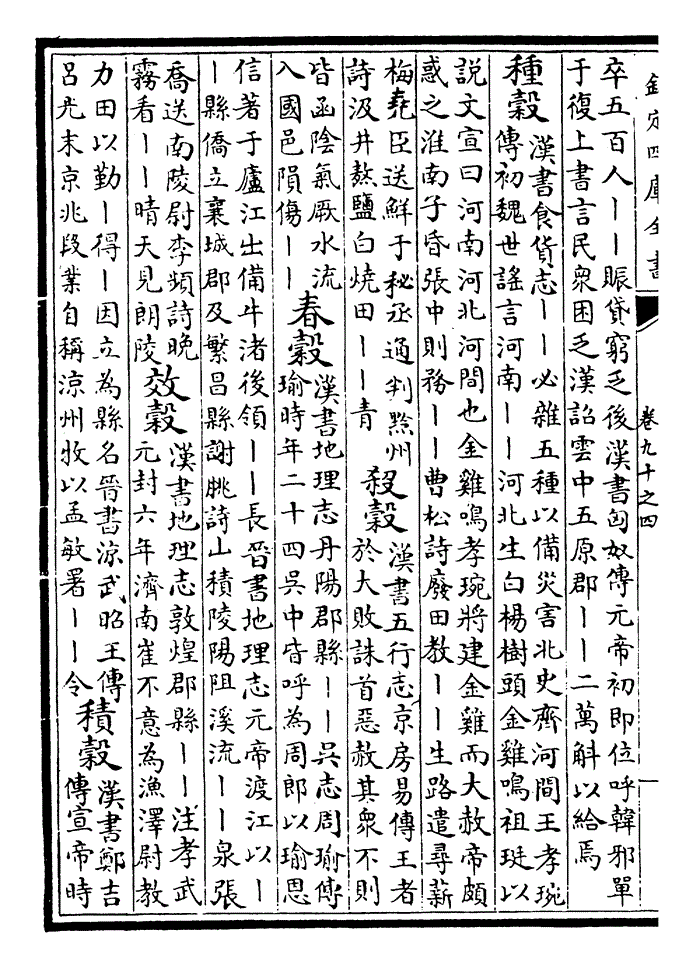 欽定四庫全書
卷九十之四
卒五百人丨丨賑貸窮乏後漢書匈奴傳元帝初即位呼韓邪單
于復上書言民衆困乏漢詔雲中五原郡丨丨二萬斛以給焉
種穀
漢書食貨志丨丨必雜五種以備災害北史齊河間王孝琬
傳初魏世謠言河南丨丨河北生白楊樹頭金雞鳴祖珽以
説文宣曰河南河北河間也金雞鳴孝琬將建金雞而大赦帝頗
惑之淮南子昏張中則務丨丨曹松詩廢田教丨丨生路遣尋薪
梅堯臣送鮮于秘丞通判黔州
詩汲井熬鹽白燒田丨丨青
殺穀
漢書五行志京房易傳王者
於大敗誅首惡赦其衆不則
皆函陰氣厥水流
入國邑隕傷丨丨
春穀
漢書地理志丹陽郡縣丨丨吳志周瑜傳
瑜時年二十四吳中皆呼為周郎以瑜恩
信著于廬江出備牛渚後領丨丨長晉書地理志元帝渡江以丨
丨縣僑立襄城郡及繁昌縣謝脁詩山積陵陽阻溪流丨丨泉張
喬送南陵尉李頻詩晚
霧看丨丨晴天見朗陵
效穀
漢書地理志敦煌郡縣丨丨注孝武
元封六年濟南崔不意為漁澤尉教
力田以勤丨得丨因立為縣名晉書涼武昭王傳
呂光末京兆段業自稱涼州牧以孟敏署丨丨令
積穀
漢書鄭吉
傳宣帝時